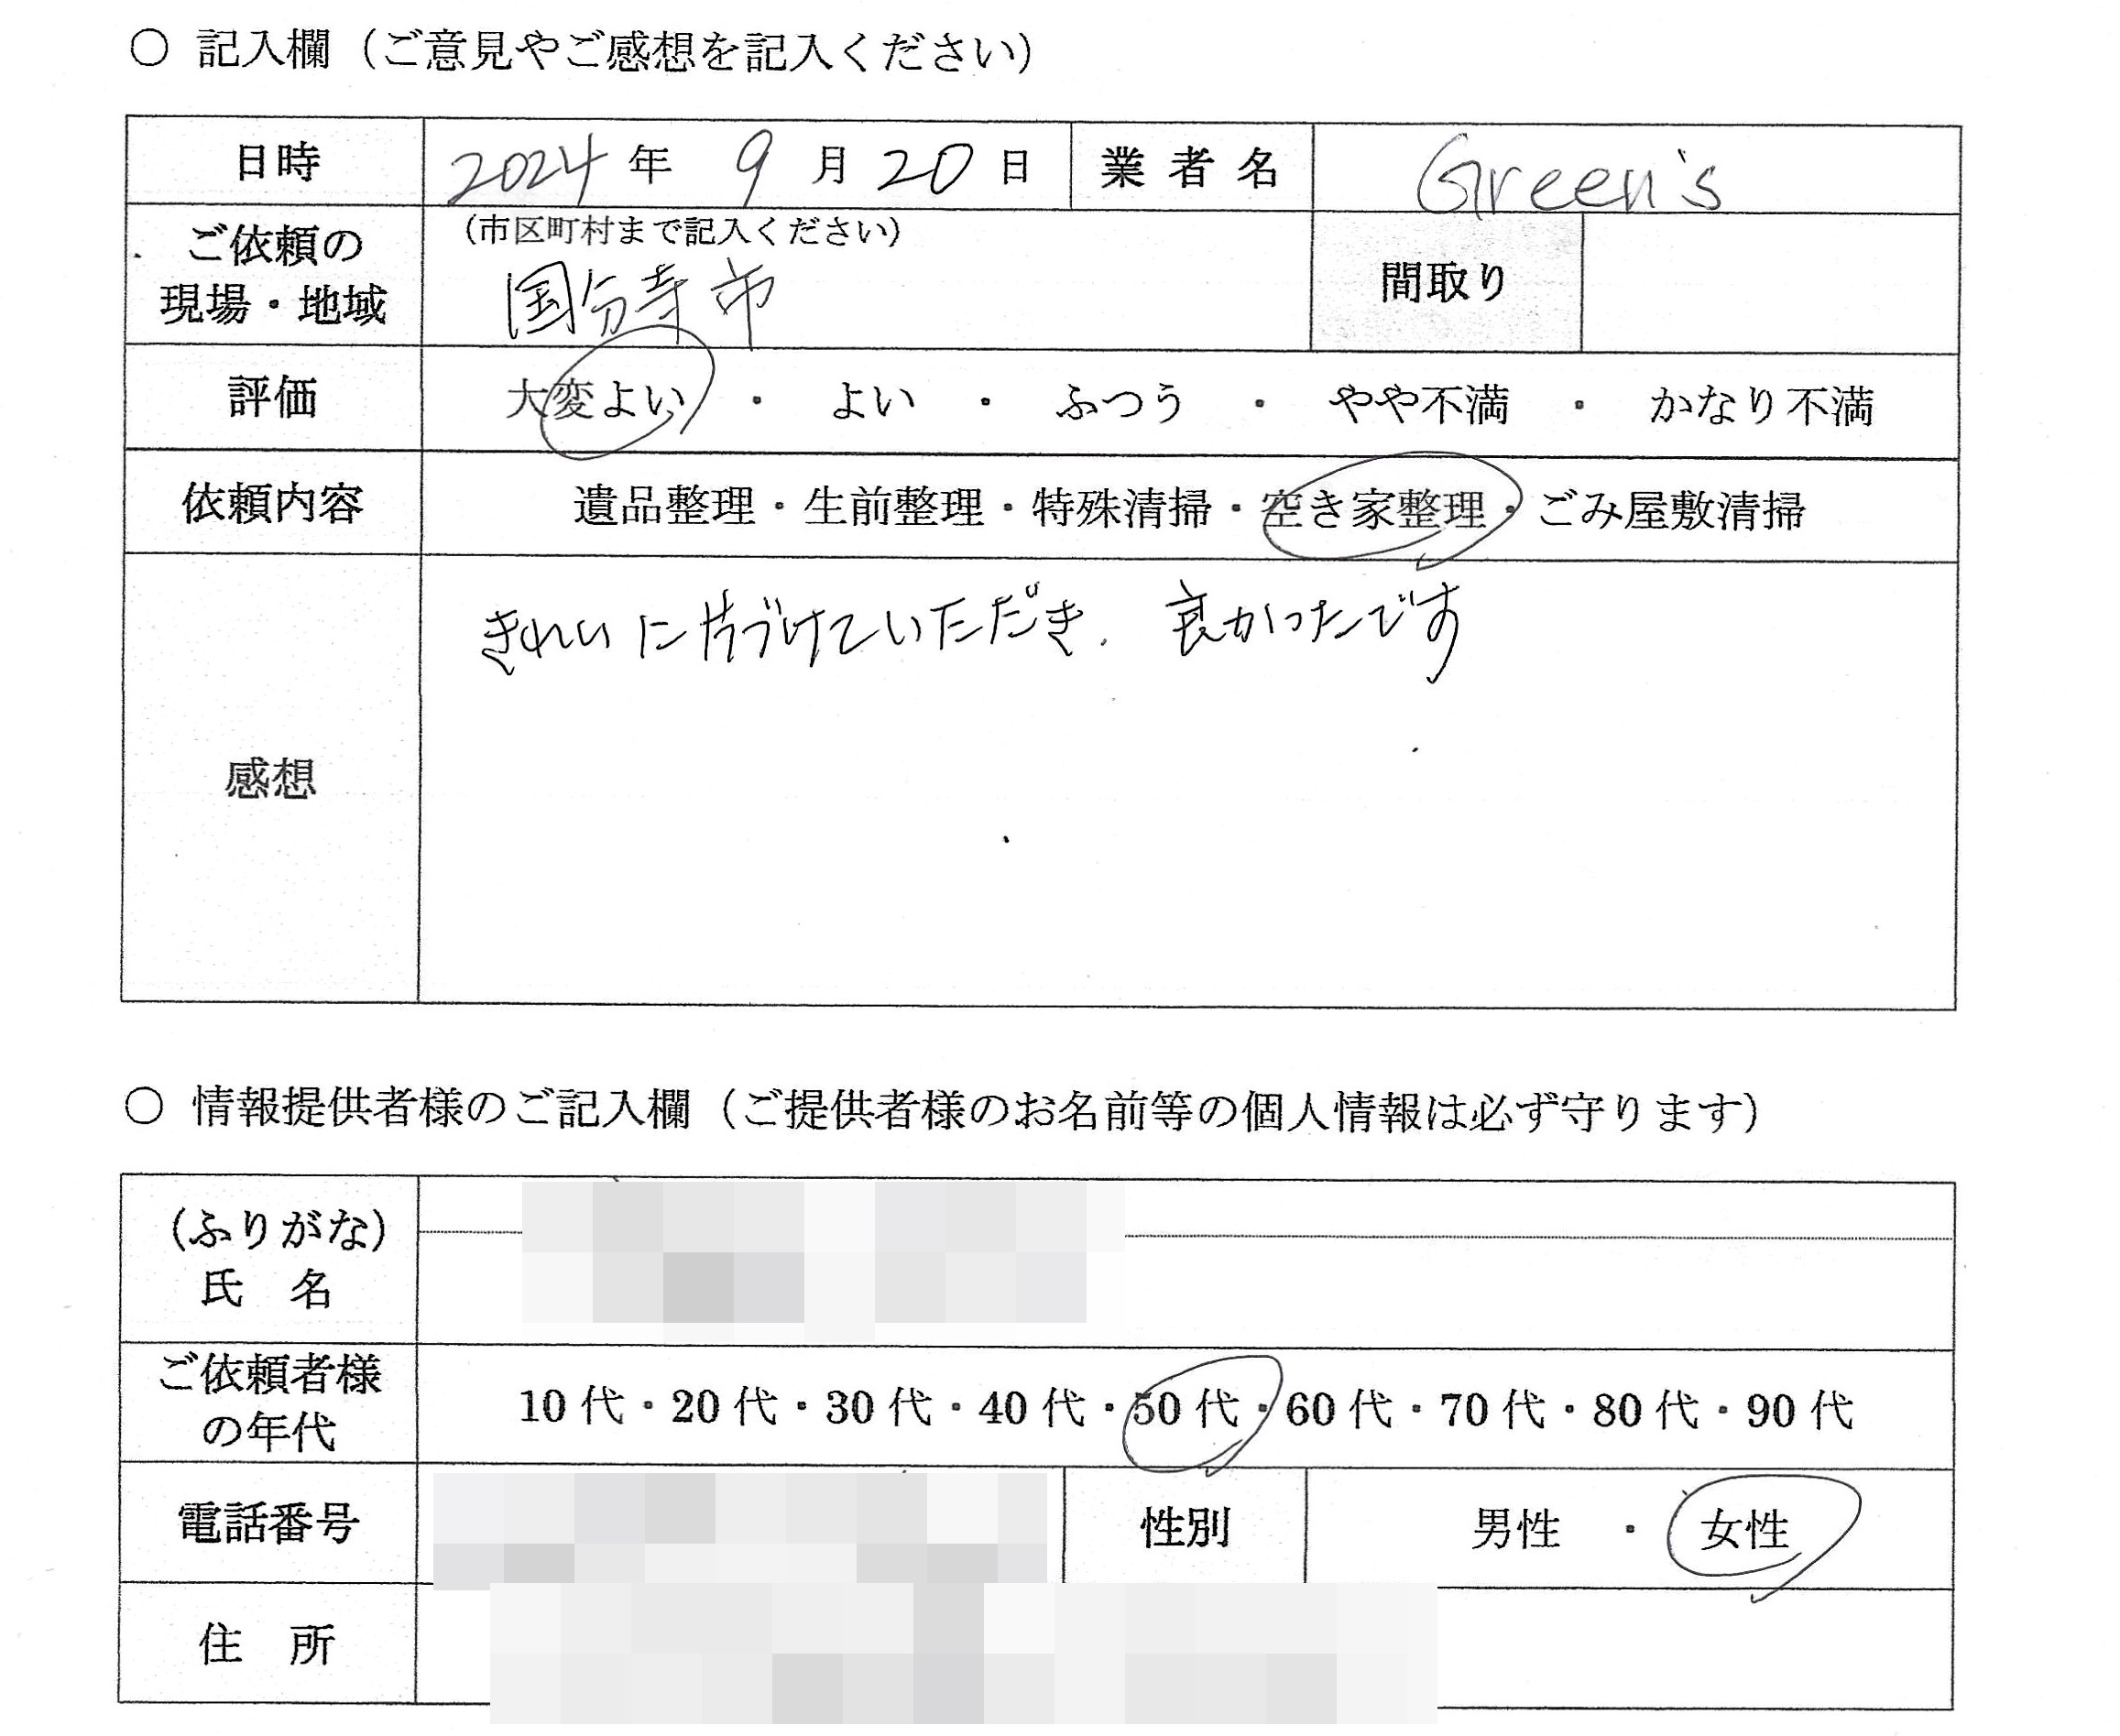 ○ 記入欄（ご意見やご感想を記入ください）
日時 2024 年 9 月 20 日 業者名 Green's
ご依頼の
現場・地域
（市区町村まで記入ください）
国分寺市
間取り
評価 大変よい ・ よい ・ ふつう ・ やや不満 ・ かなり不満
依頼内容 遺品整理・生前整理・特殊清掃・空き家整理・ごみ屋敷清掃
感想
きれいに片づけていただき、良かったです
○ 情報提供者様のご記入欄（ご提供者様のお名前等の個人情報は必ず守ります）
（ふりがな）
氏 名
ご依頼者様
の年代
10代・20代・30代・40代・50代・60代・70代・80代・90代
電話番号 性別 男性 ・ 女性
住 所